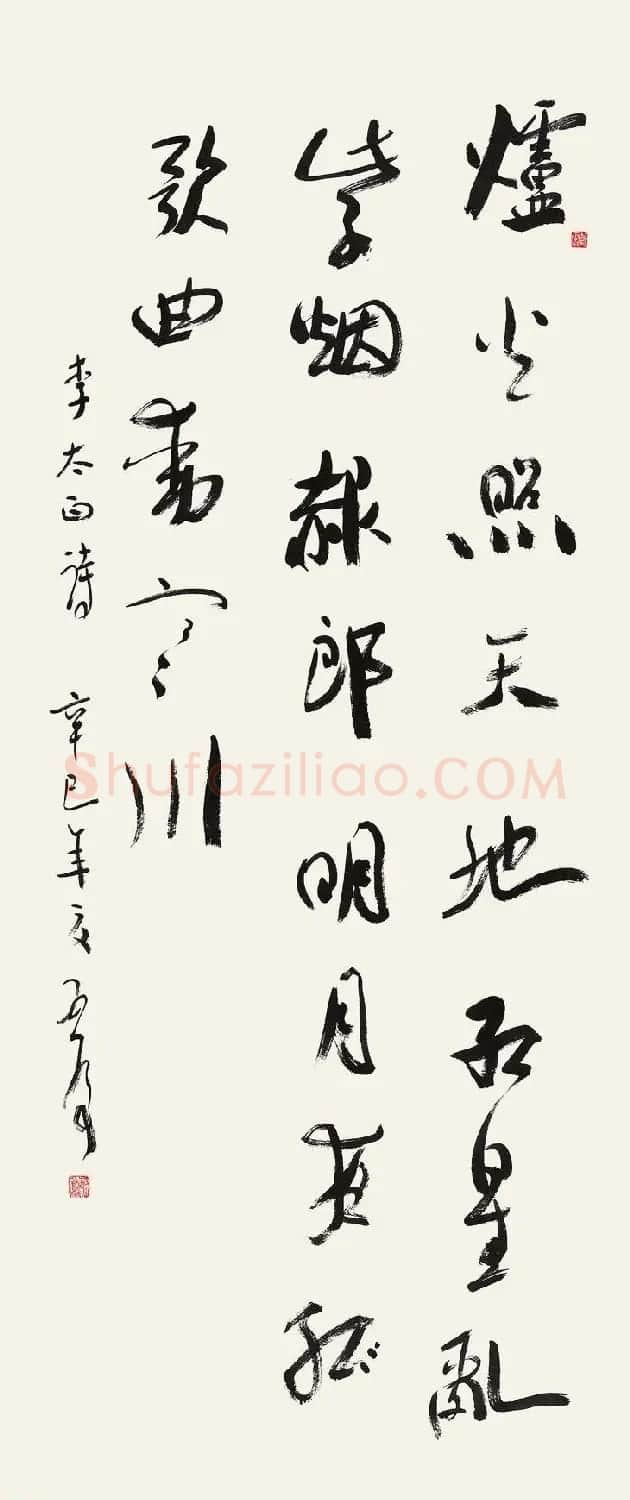 爐火照天地红星亂
紫烟赧郎明月夜
歌曲動寒川
李太白詩 辛巳年夏
Shufaziliao.COM